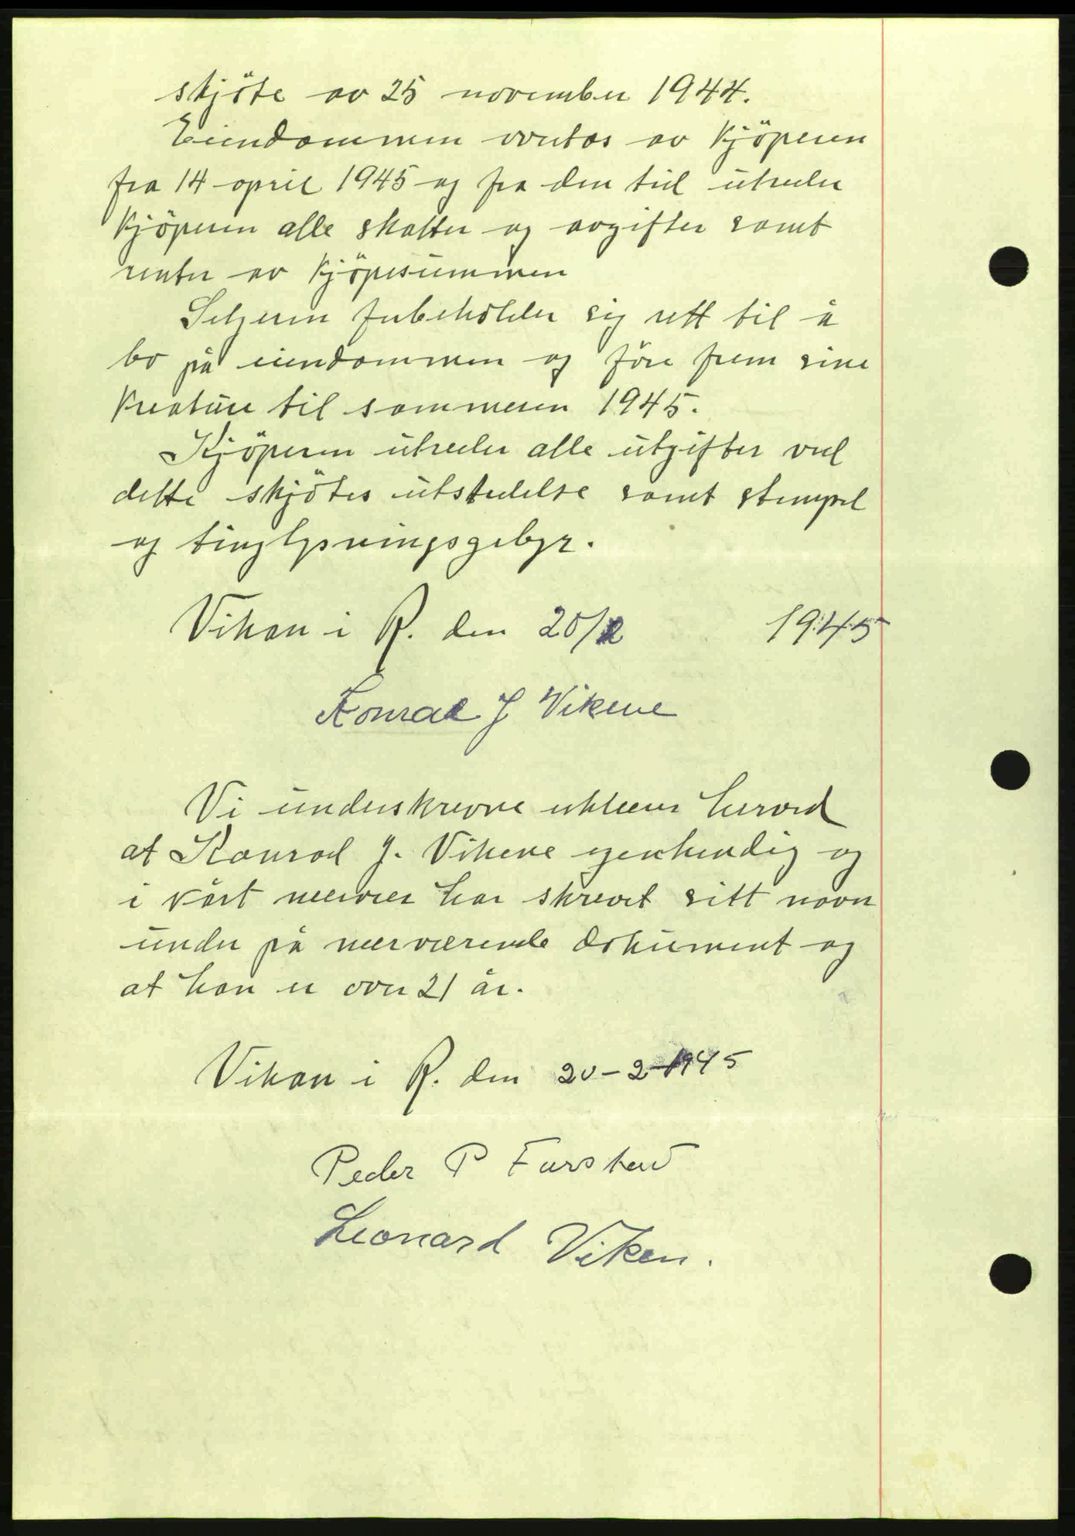 skjöte av 25 november 1944.
Eiendommen overtas av kjöperen
fra 14 april 1945 og fra den tid utreder
kjöperen alle skatter og avgifter samt
renter av kjöpesummen
Selgeren forbeholder sig rett til å
bo på eiendommen og före frem sine
kreature til sommeren 1945.
Kjöperen utreder alle utgifter ved
dette skjötes utstedelse samt stempel
og tinglysningsgebyr.
Vikan i R. den 20/2 1945
Konrad J Vikene
Vi underskrevne erklærer herved
at Konrad J. Vikene egenhendig og
i vårt nærvær har skrevet sitt navn
under på nærværende dokument og
at han er over 21 år.
Vikan i R. den 20-2-1945
Peder P
Leonard Viken.